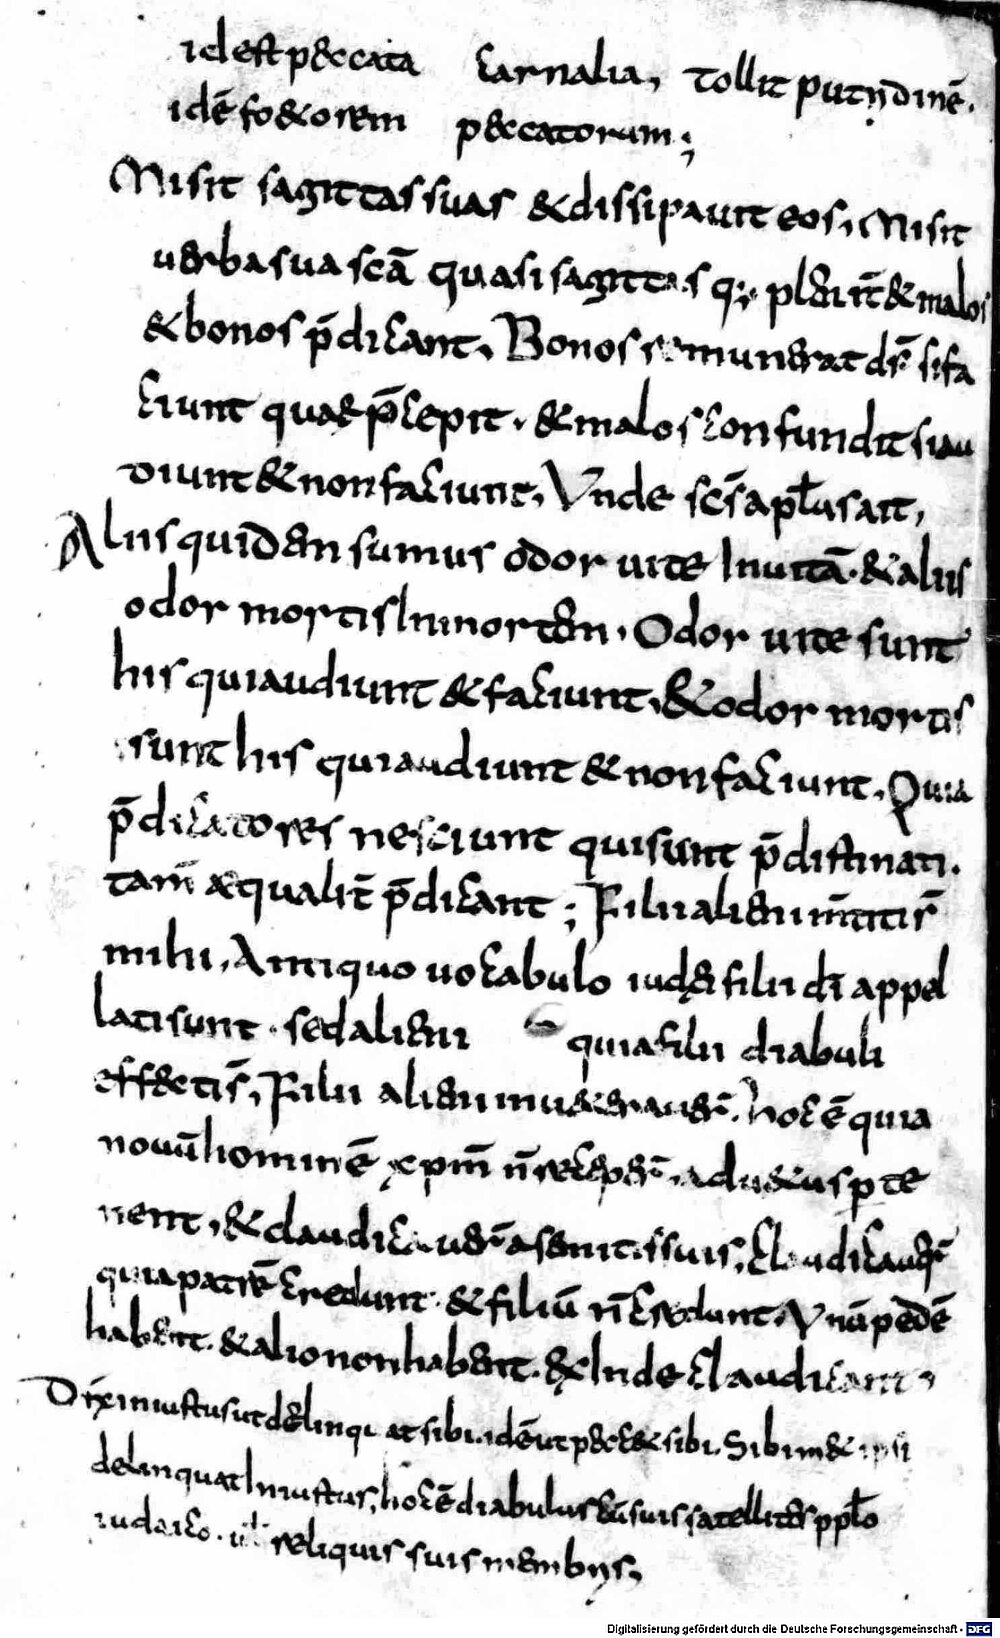 id est peccata carnalia, tollit putridinē.
idē foetorem peccatorum;
Misit sagittas suas & dissipauit eos, Misit
uerba sua scā quasi sagittas & malos
& bonos p̄dicant, Bonos remunerat ds̄ si fa
ciunt quae p̄cepit. & malos confundit si au
diunt & non faciunt, Vnde scs̄ apl̄us ait,
Aliis quidem sumus odor uite In uitā. & aliis
odor mortis In mortem. Odor uite sunt
his qui audiunt & faciunt, & odor mortis
sunt his qui audiunt & non faciunt. Quia
p̄dicatores nesciunt qui sunt p̄distinati.
tam̄ aequalit̄ p̄dicant; Filii alieni m̄titi s̄
mihi, Antiquo uocabulo iudei filii dī appel
lati sunt. sed alieni quia filii diabuli
effecti s̄, Filii alieni inueterauer̄. hoc ē quia
nouū hominē xp̄m n̄ receper̄. adueteris p te
nent, & claudicauer̄ a semitis suis, Claudicauer̄
quia patrē credunt. & filiū n̄ credunt. Vnū pedē
habent. & alio non habent. & Inde claudicant,
Dixit iniustus ut delinquat sibi. idē ut peccet sibi. Sibimet ipsi
delinquat Iniustus, hoc ē diabulus cū suis satellites ppl̄o
iudaico. uł reliquis suis membris,
Digitalisierung gefördert durch die Deutsche Forschungsgemeinschaft - DFG